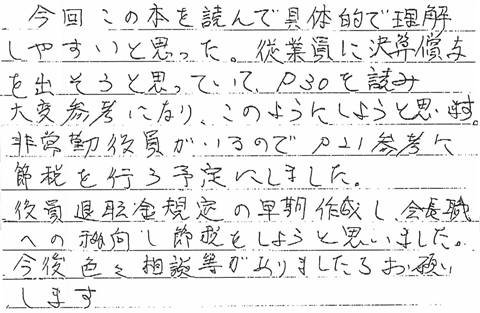 今回この本を読んで具体的で理解
しやすいと思った。従業員に決算償与
を出そうと思っていて、P30を読み
大変参考になり、このようにしようと思います。
非常勤役員がいるので P21参考に
節税を行う予定にしました。
役員退職金規定の早期作成し、会長職
への移向し節税をしようと思いました。
今後色々相談等がありましたらお願い
します